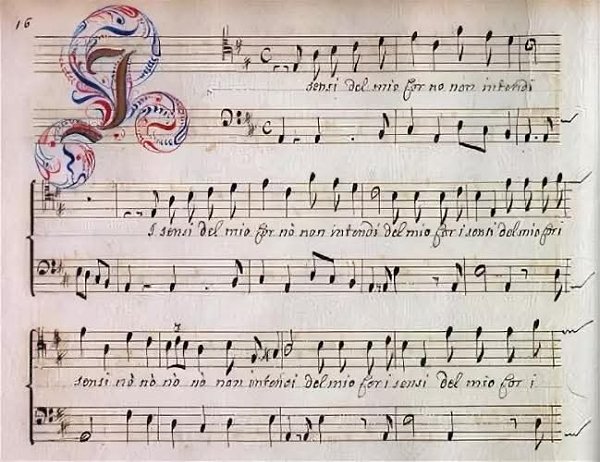 16
I
sensi del mio for no non intendi
I sensi del mio for nò non intendi del mio for i sensi del mio fori
sensi nò nò nò nò non intendi del mio for i sensi del mio for i